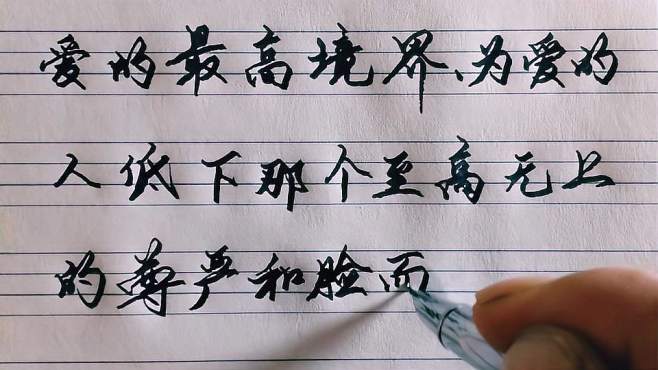 爱的最高境界、为爱的
人低下那个至高无上
的尊严和脸面